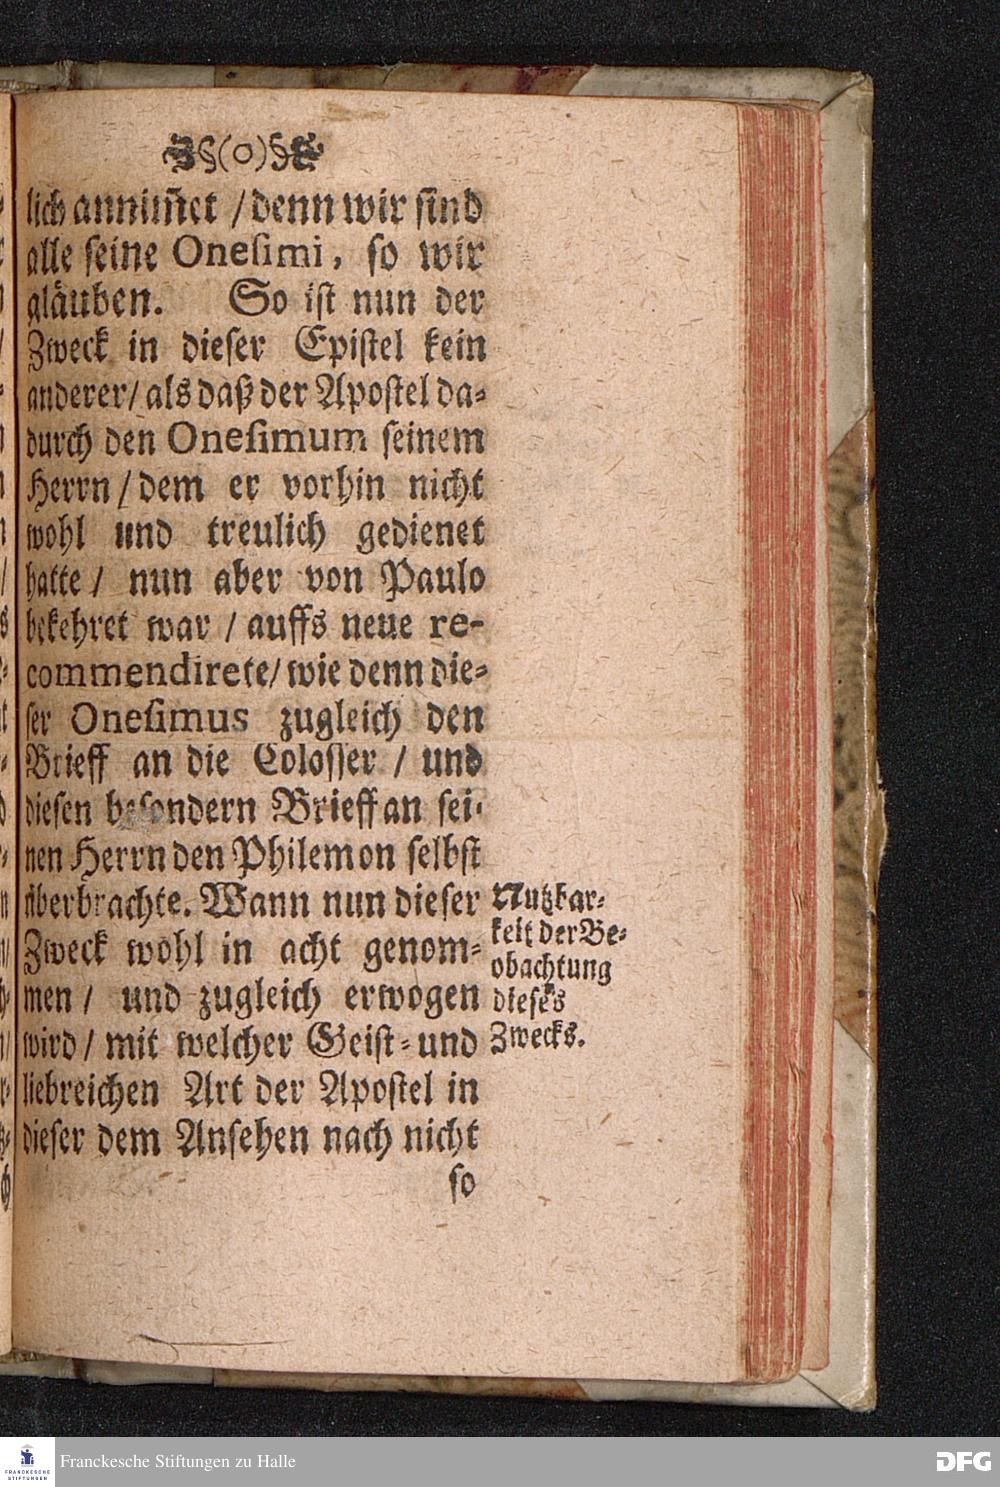 §(o)§
lich annim̃et / denn wir sind
alle seine Onesimi, so wir
gläuben. So ist nun der
Zweck in dieser Epistel kein
anderer / als daß der Apostel da-
durch den Onesimum seinem
Herrn / dem er vorhin nicht
wohl und treulich gedienet
hatte / nun aber von Paulo
bekehret war / auffs neue re-
commendirete / wie denn die-
ser Onesimus zugleich den
Brieff an die Colosser / und
diesen besondern Brieff an sei-
nen Herrn den Philemon selbst
überbrachte. Wann nun dieser
Zweck wohl in acht genom-
men / und zugleich erwogen
wird / mit welcher Geist- und
liebreichen Art der Apostel in
dieser dem Ansehen nach nicht
so
Nutzbar-
keit der Be-
obachtung
dieses
Zwecks.
FRANCKESCHE
STIFTUNGEN
Franckesche Stiftungen zu Halle
DFG